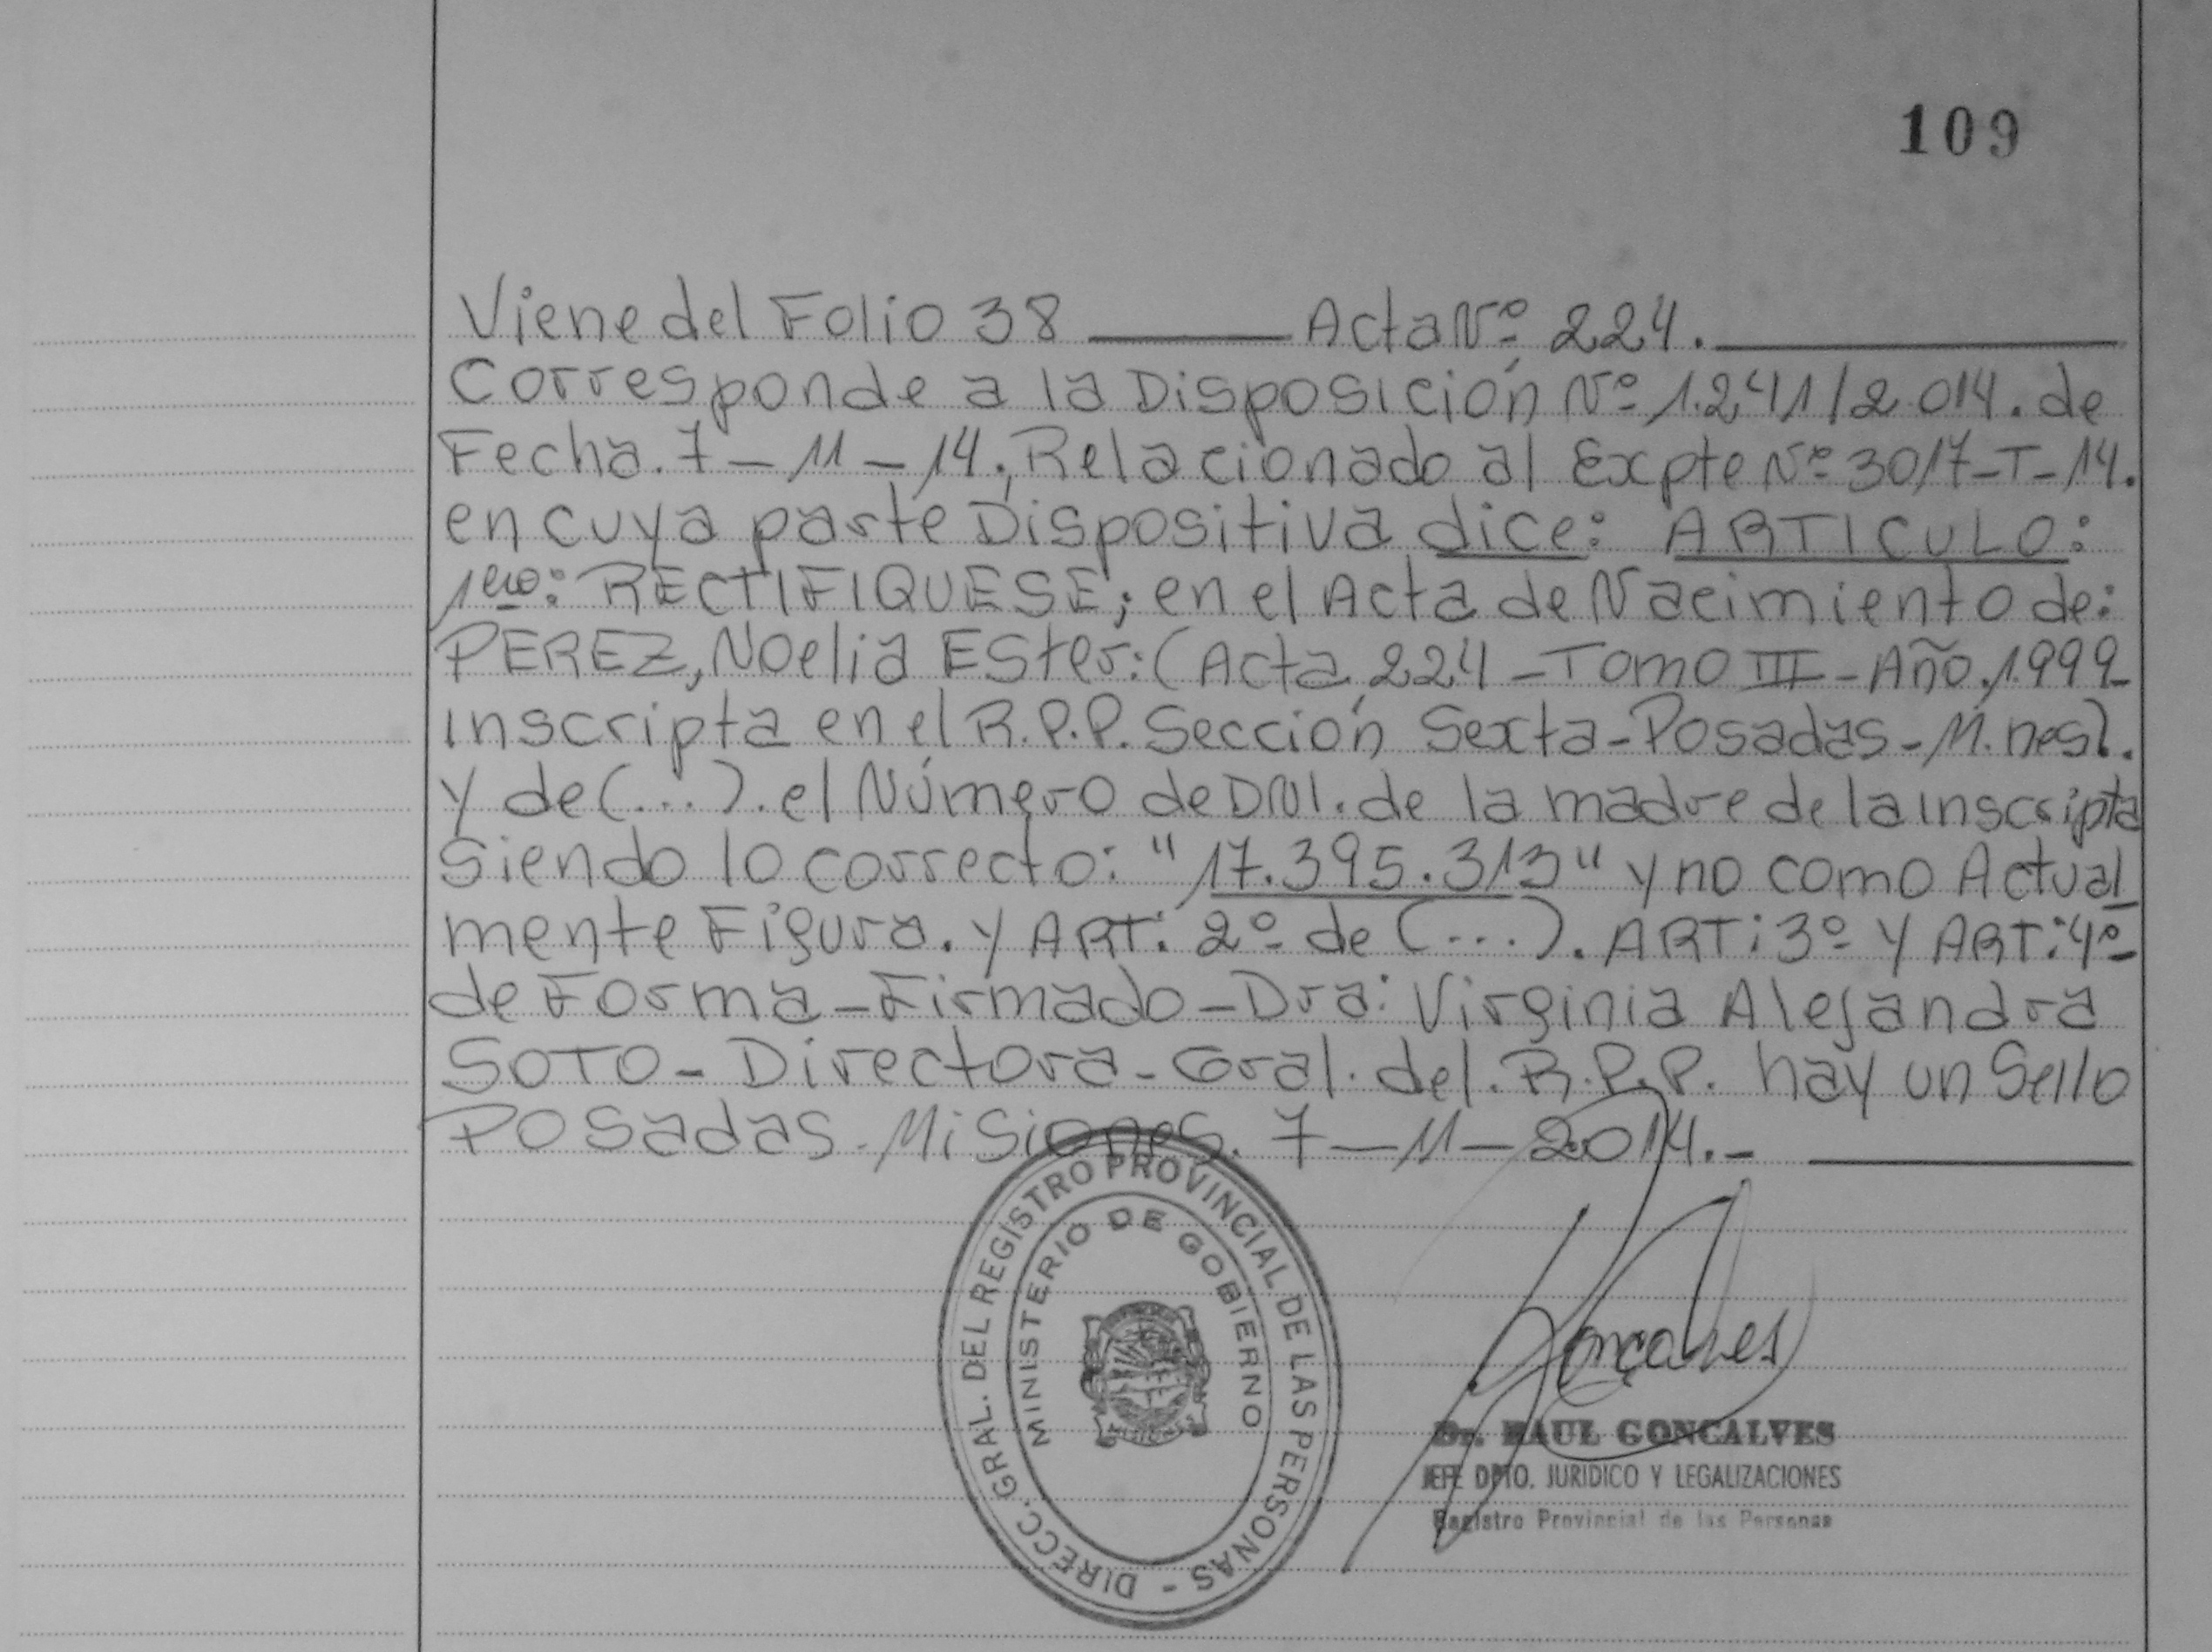 109
Viene del Folio 38 ——— Acta Nº 224. ———
Corresponde a la Disposición Nº 1.241/2.014. de
Fecha. 7 - 11 - 14. Relacionado al Expte Nº 3017-T-14.
en cuya parte Dispositiva dice: ARTICULO:
1ero: RECTIFIQUESE; en el Acta de Nacimiento de:
PEREZ, Noelia Ester: (Acta 224 - Tomo III - Año. 1999-
inscripta en el R.P.P. Sección Sexta - Posadas - M.nes).
y de (...). el Número de DNI. de la madre de la inscripta
siendo lo correcto: "17.395.313" y no como Actual
mente Figura. y ART: 2º de (...). ART: 3º y ART: 4º
de Forma - Firmado - Dra: Virginia Alejandra
SOTO - Directora - Gral. del. R.P.P. hay un Sello
Posadas - Misiones. 7 - 11 - 2014.- ———
DIRECC. GRAL. DEL REGISTRO PROVINCIAL DE LAS PERSONAS -
MINISTERIO DE GOBIERNO
MISIONES
Goncalves
Dr. RAUL GONCALVES
JEFE DPTO. JURIDICO Y LEGALIZACIONES
Registro Provincial de las Personas